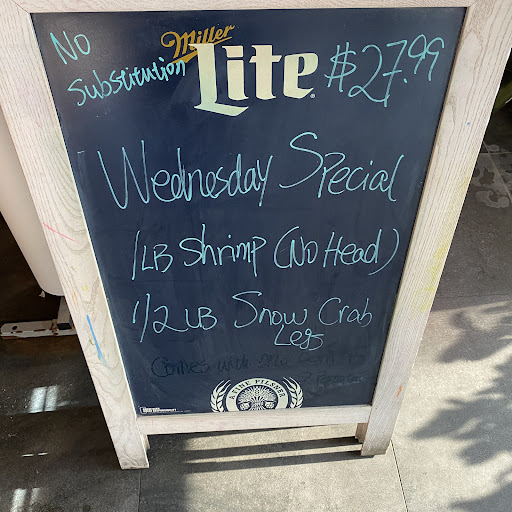 No
Substitution
Miller
Lite
$27.99
Wednesday Special
1LB Shrimp (No Head)
1/2 LB Snow Crab
Legs
Comes with
A FINE PILSNER